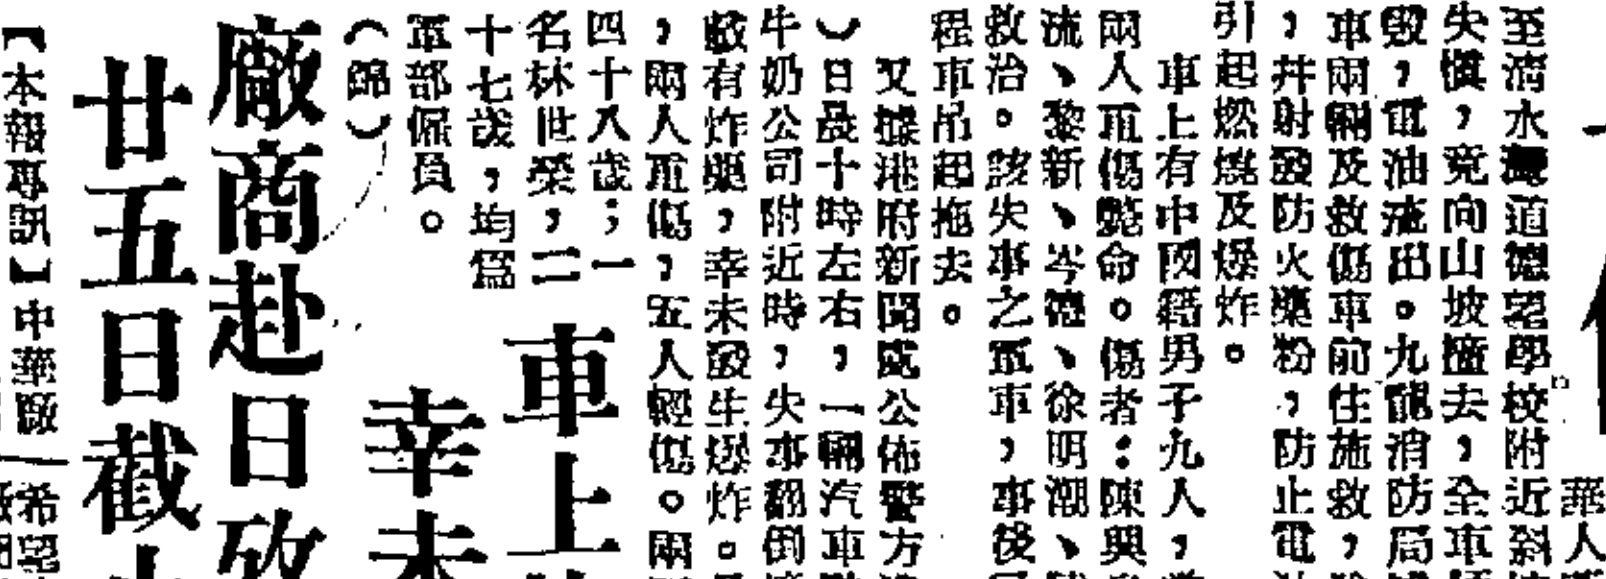 華人
至清水灣道德望學校附近斜
失慎，竟向山坡撞去，全車
毀，電油流出。九龍消防局
車兩輛及救傷車前往施救，
，幷射發防火藥粉，防止電
引起燃燒及爆炸。
車上有中國籍男子九人，
兩人重傷斃命。傷者：陳興
流、黎新、岑德、徐明潮、
救治。該失事之軍車，事後
程車吊起拖去。
又據港府新聞處公佈警方
）日晨十時左右，一輛汽車
牛奶公司附近時，失事翻倒
載有炸藥，幸未發生爆炸。
，兩人重傷，五人輕傷。兩
四十八歲；一
名林世榮，二
十七歲，均爲
軍部僱員。
（錦）
車上
幸未
廠商赴日攷
廿五日截
【本報專訊】中華廠
希望